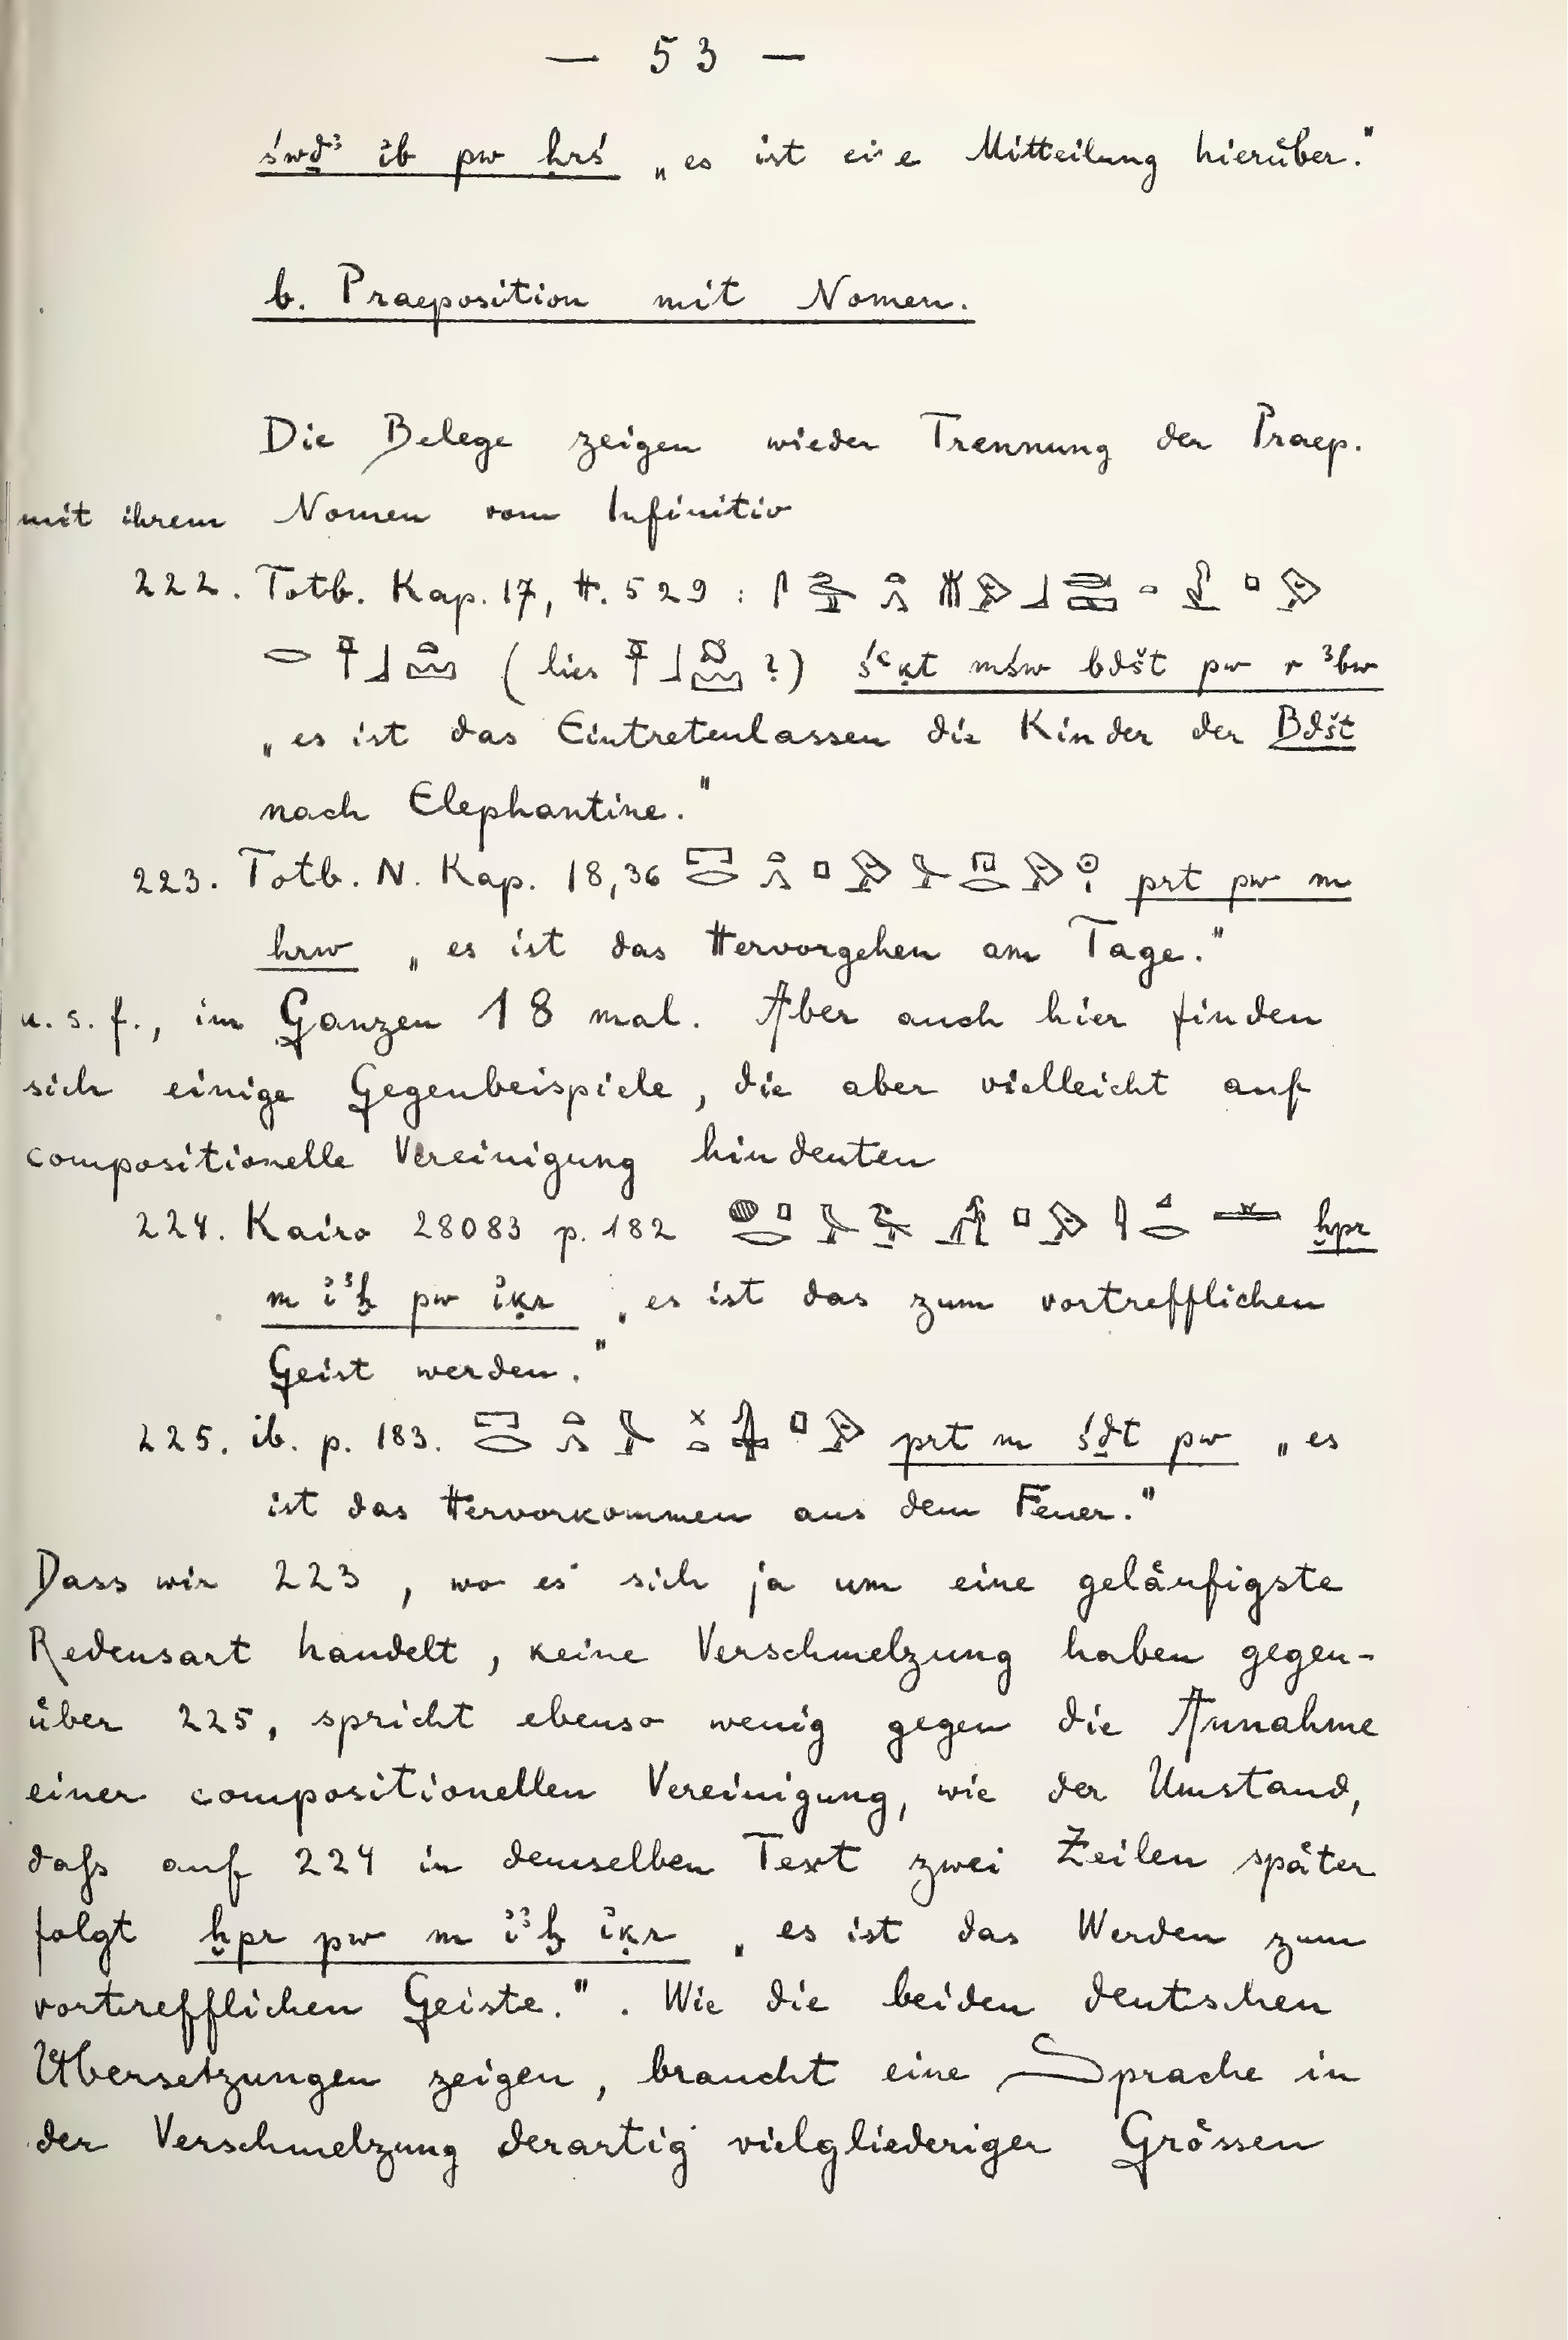 — 53 —
śwḏꜣ ib pw ḥrś „es ist eine Mitteilung hierüber."
b. Praeposition mit Nomen.
Die Belege zeigen wieder Trennung der Praep.
mit ihrem Nomen vom Infinitiv
222. Totb. Kap. 17, H. 529 :
( lies ?) śꜥḳt mśw bdšt pw r ꜣbw
„es ist das Eintretenlassen die Kinder der Bdšt
nach Elephantine."
223. Totb. N. Kap. 18,36 prt pw m
hrw „es ist das Hervorgehen am Tage."
u. s. f., im Ganzen 18 mal. Aber auch hier finden
sich einige Gegenbeispiele, die aber vielleicht auf
compositionelle Vereinigung hindeuten
224. Kairo 28083 p. 182 ḫpr
m iꜣḫ pw iḳr „es ist das zum vortrefflichen
Geist werden."
225. ib. p. 183. prt m śḏt pw „es
ist das Hervorkommen aus dem Feuer."
Dass wir 223, wo es sich ja um eine geläufigste
Redensart handelt, keine Verschmelzung haben gegen-
über 225, spricht ebenso wenig gegen die Annahme
einer compositionellen Vereinigung, wie der Umstand,
daſs auf 224 in demselben Text zwei Zeilen später
folgt ḫpr pw m iꜣḫ iḳr „es ist das Werden zum
vortrefflichen Geiste.". Wie die beiden deutschen
Übersetzungen zeigen, braucht eine Sprache in
der Verschmelzung derartig vielgliederiger Grössen